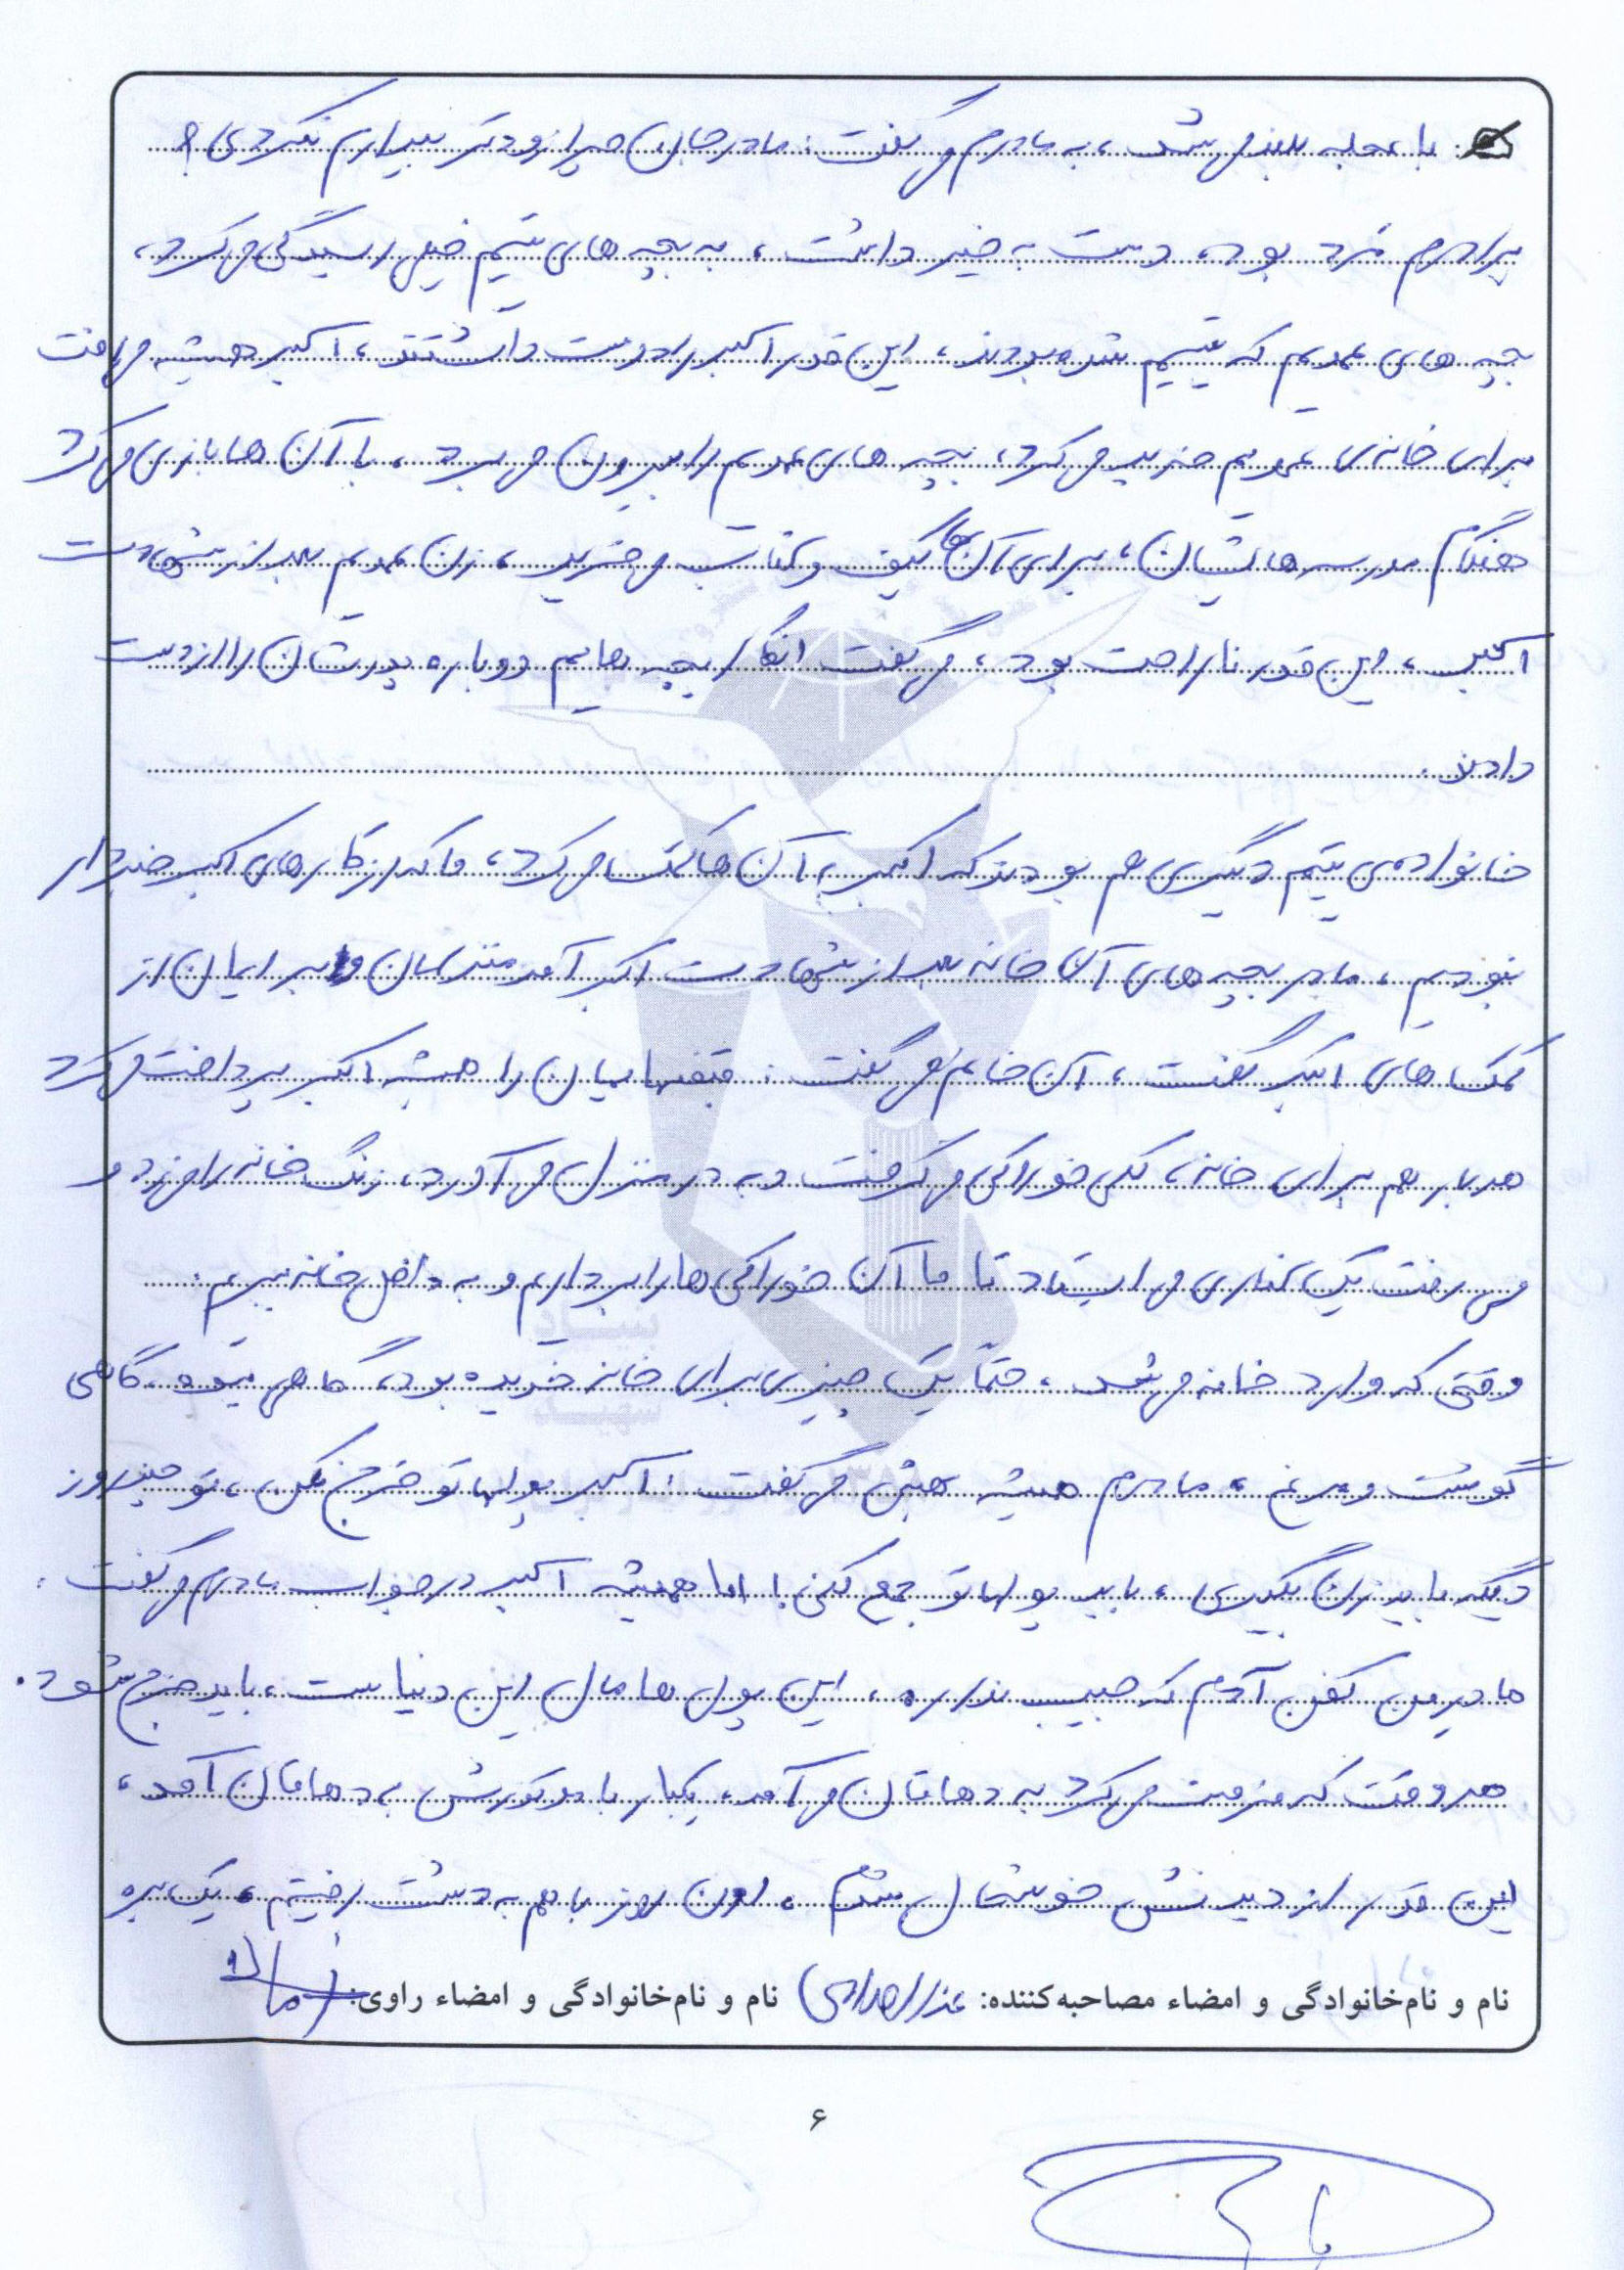 با عجله بلند می‌شد، به مادرم می‌گفت: مادر جان چرا زودتر بیدارم نکردی؟
برادرم مَرد بود، دست به خیر داشت، به بچه های یتیم خیلی رسیدگی می‌کرد،
بچه های عمویم که یتیم شده بودند، این قدر اکبر را دوست داشتند، اکبر همیشه می‌رفت
برای خانه‌ی عمویم خرید می‌کرد، بچه های عمویم را بیرون می‌برد، با آن ها بازی می‌کرد
هنگام مدرسه هایشان، برای آن ها کیف و کتاب می‌خرید، زن عمویم بعد از شهادت
اکبر، این قدر ناراحت بود، می‌گفت انگار بچه هایم دوباره پدرشان را از دست
دادند.
خانواده‌ی یتیم دیگری هم بودند که اکبر به آن ها کمک می‌کرد، ما که از کارهای اکبر خبردار
نبودیم، مادر بچه های آن خانه بعد از شهادت اکبر آمد منزلمان و برایمان از
کمک های اکبر گفت، آن خانم می‌گفت: قبض‌هایمان را همیشه اکبر پرداخت می‌کرد
هر بار هم برای خانه، کلی خوراکی می‌گرفت و به در منزل می‌آورد، زنگ خانه را می‌زد و
می رفت یک کناری می‌ایستاد تا ما آن خوراکی ها را برداریم و به داخل خانه ببریم.
وقتی که وارد خانه می‌شد، حتماً یک چیزی برای خانه خریده بود، گاهی میوه، گاهی
گوشت و مرغ، مادرم همیشه بهش می‌گفت: اکبر پولهاتو خرج نکن، تو چند روز
دیگه باید زن بگیری، باید پولهاتو جمع کنی! اما همیشه اکبر در جواب مادرم می‌گفت:
مادر من کفن آدم که جیب نداره، این پول ها مال این دنیاست، باید خرج شود.
هر وقت که فرصت می‌کرد به دهاتمان می‌آمد، یکبار با موتورش به دهاتمان آمد،
این قدر از دیدنش خوشحال شدم، اون روز با هم به دشت رفتیم، یک بره
نام و نام‌خانوادگی و امضاء مصاحبه‌کننده: نام و نام‌خانوادگی و امضاء راوی:
۶